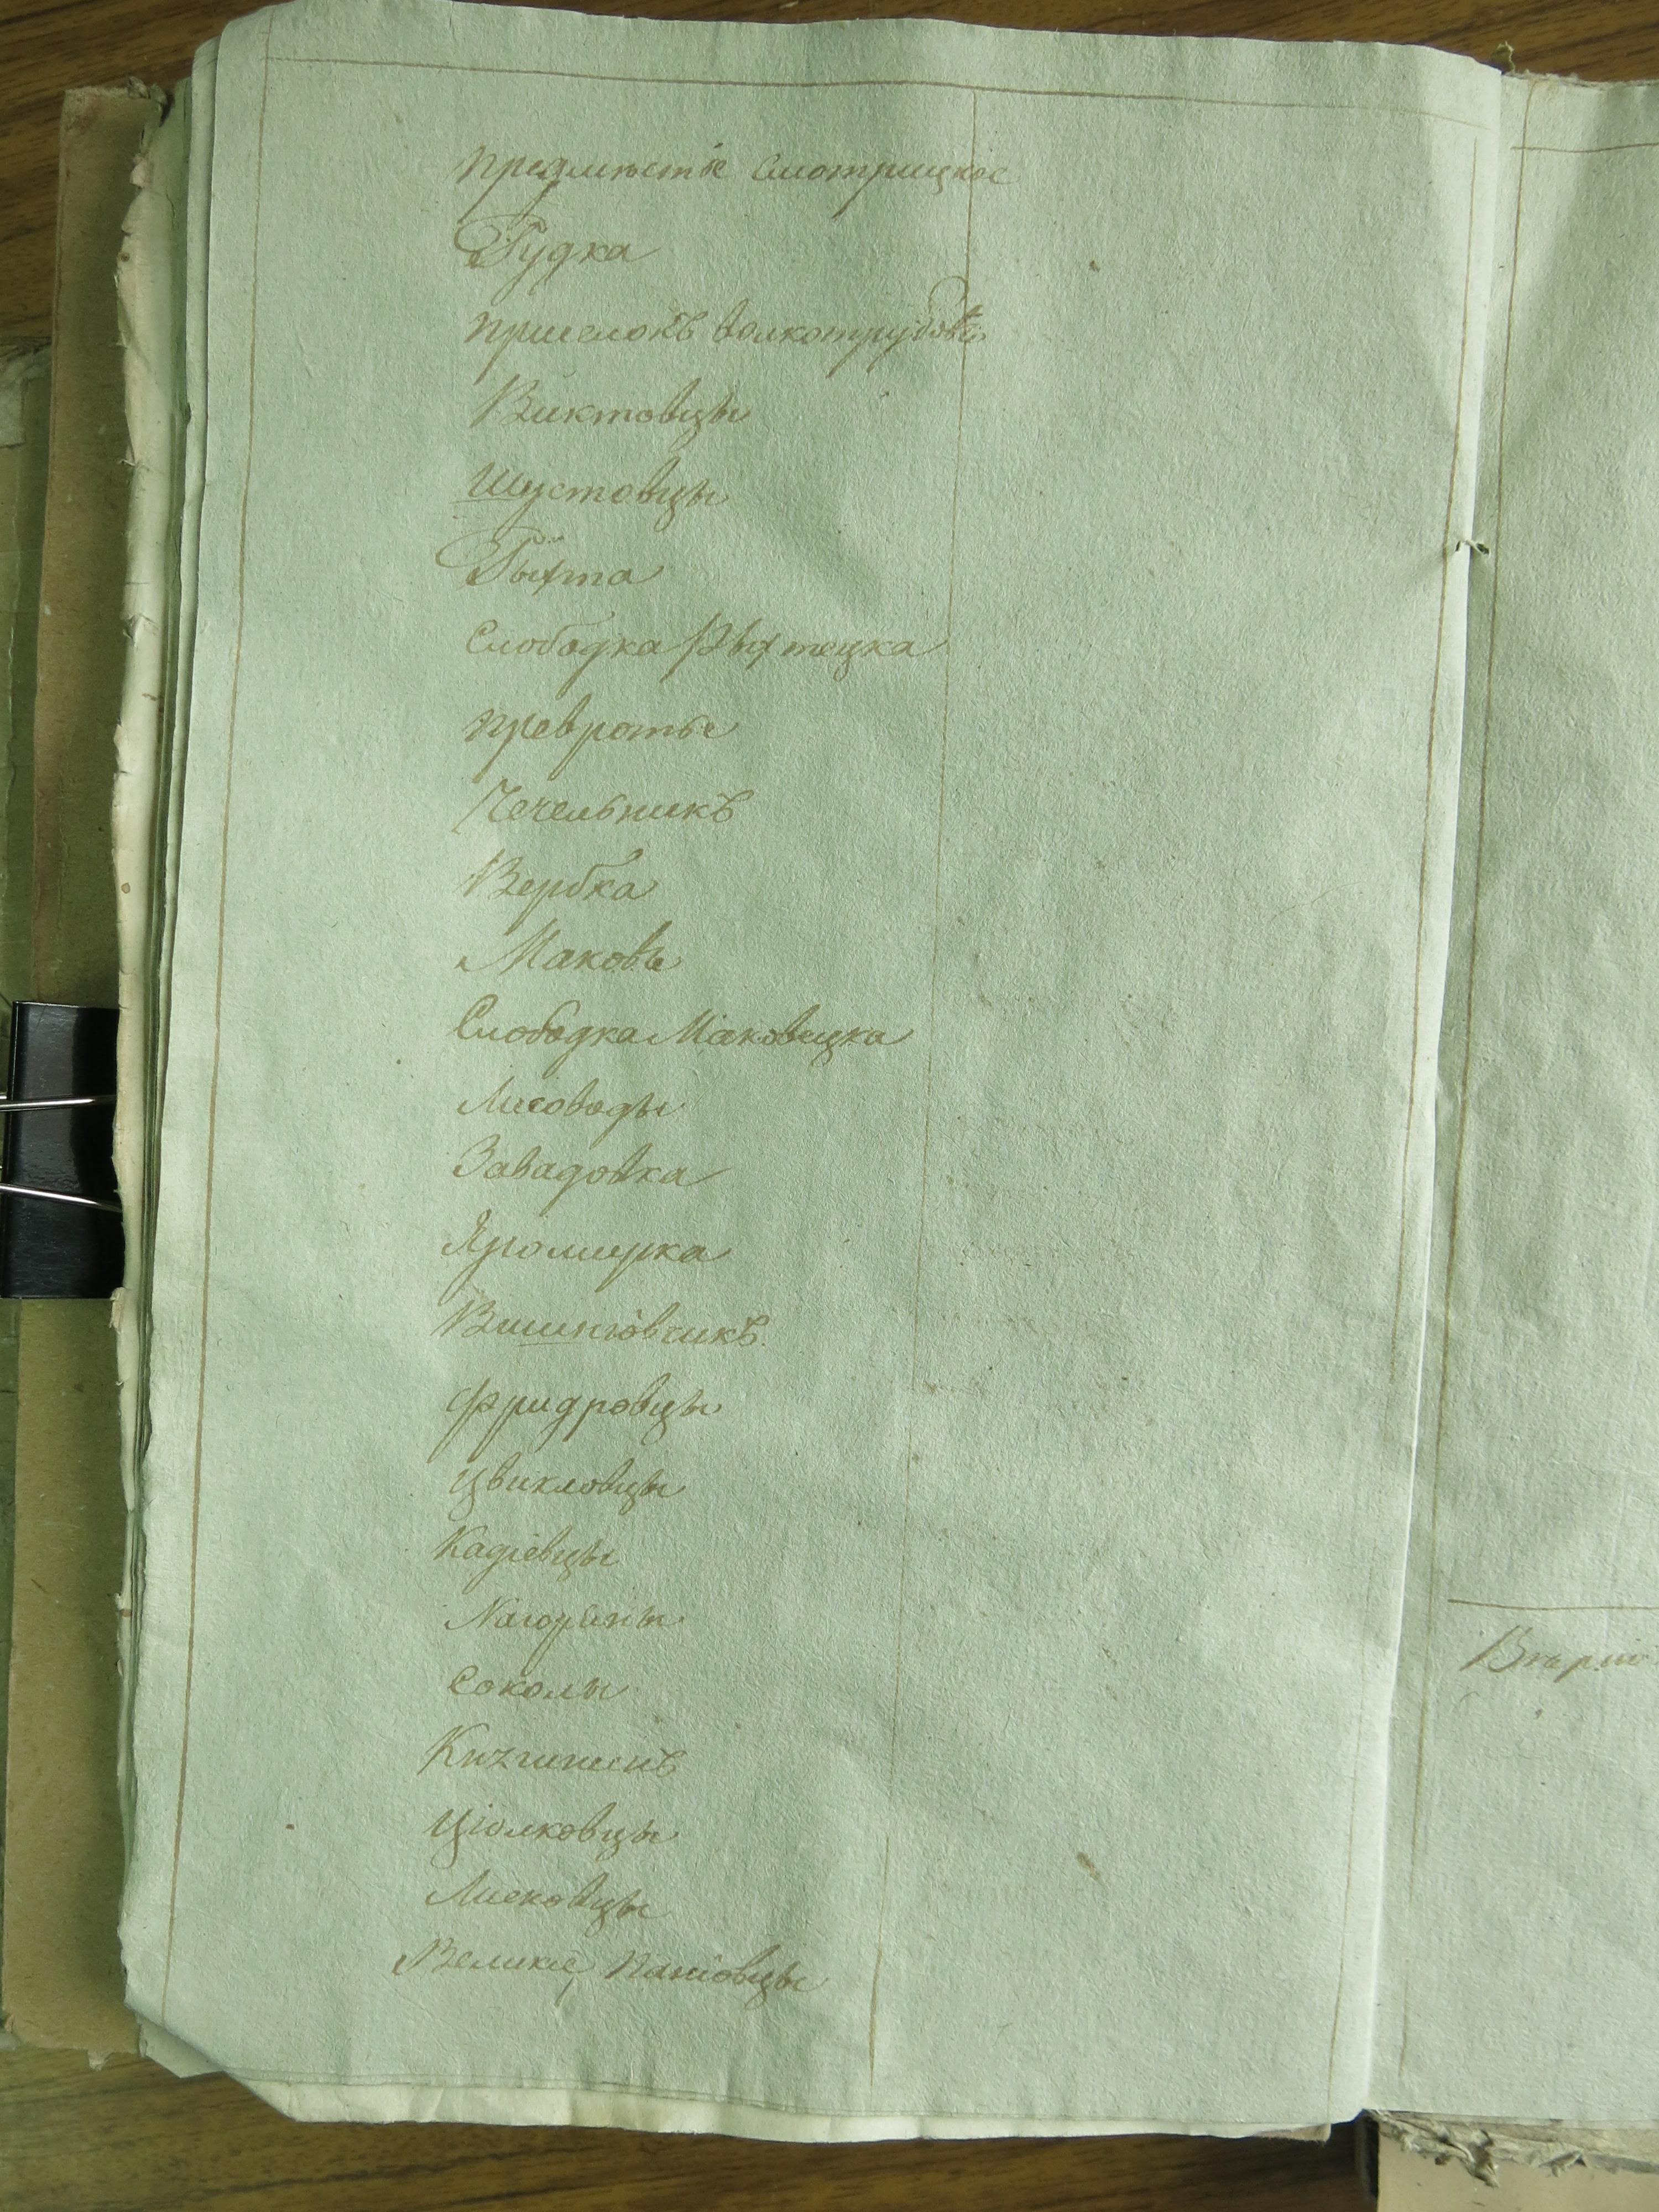 предмѣстіе Смотрицкое
Рудка
приселокъ волкотрубовъ
Виктовцы
Шустовцы
Рыхта
Слободка Рыхтецка
превротье
Чечельникъ
Вербка
Маковъ
Слободка Маковецка
Лисоводы
Завадовка
Яромирка
Вишніовчикъ
Фридровцы
Цвикловцы
Кадіевцы
Нагоряны
Соколы
Княгининъ
Ціолковцы
Лисковцы
Великіе Паніовцы